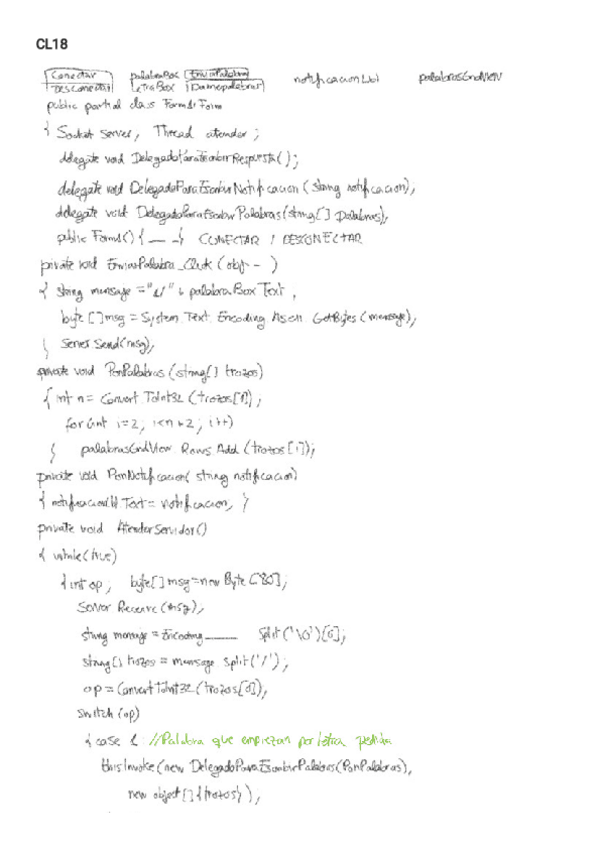 CL18
Conectar palabraBox EnviarPalabra notificacionLbl palabrasGridView
Desconectar letraBox Damepalabras
public partial class Form1: Form
{ Socket server, Thread atender;
delegate void DelegadoParaEscribirRespuesta();
delegate void DelegadoParaEscribirNotificacion (string notificacion),
delegate void DelegadoParaEscribirPalabras (string[] palabras),
public Form1() { __ _} CONECTAR / DESCONECTAR
private void EnviarPalabra_Click (obj - - )
{ string mensaje = "1/" + palabraBox Text ,
byte []msg = System Text Encoding ASCII GetBytes (mensaje),
} server.Send(msg),
private void PonPalabras (string[] trozos)
{ int n = Convert ToInt32 (trozos[1]);
for(int i=2; i<n+2; i++)
} palabrasGridView Rows Add (trozos[i]);
private void PonNotificacion( string notificacion)
{ notificacionlbl Text = notificacion, }
private void AtenderServidor()
{ while(true)
{int op, byte[]msg=new Byte [80];
Server Receive (msg),
string mensaje = Encoding____ Split('\0')[0];
string[] trozos = mensaje split('/');
op = Convert ToInt32 (trozos[0]),
switch (op)
{ case 1: //Palabra que empiezan por letra pedida
this Invoke (new DelegadoParaEscribirPalabras(PonPalabras),
new object[]{trozos}),